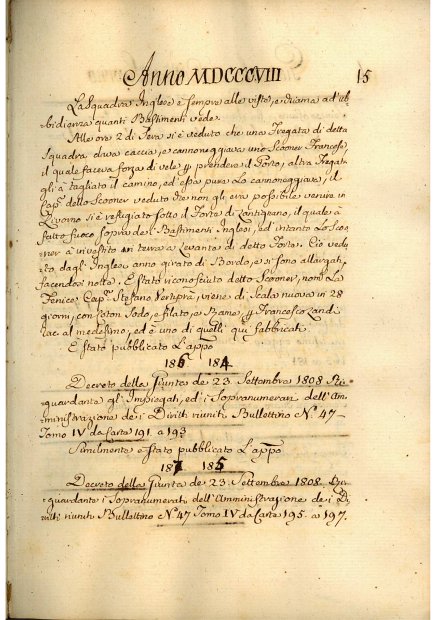 Anno MDCCCVIII 15
La Squadra Inglese è sempre alle viste, e chiama ad ub-
bidienza quanti Bastimenti vede.
Alle ore 2 di Sera si è veduto che una Fregata di detta
Squadra dava caccia, e cannoneggiava uno Scooner Francese,
il quale faceva forza di vele p prendere il Porto, altra Fregata
gli à tagliato il camino, ed essa pure Lo cannoneggiava, il
Cap. dello Scooner veduto che non gli era possibile venire in
Livorno si è refugiato sotto il Forte di Antignano, il quale à
fatto fuoco sopra dell' Bastimenti Inglesi, ed intanto Lo Sco-
ner à investito in terra a Levante di detto Forte. Ciò vedu-
to dagl' Inglesi anno girato di Bordo, e si sono allargati,
facendosi notte. È stato riconosciuto detto Scooner, nom. La
Fenice Cap. Stefano viene di Scala nuova in 28
giorni, con Coton Sodo, e filato, e Rame p Francesco
ac. al medesimo, ed è uno di quelli qui fabbricati.
È stato pubblicato L'app.o
186 184
Decreto della Giunta de' 23 Settembre 1808 Ri-
guardante gli Impiegati, ed i Sopranumerari dell' Am-
ministrazione dei Diritti riuniti Bullettino N. 47 -
Tomo IV da Carte 191. a 193
Similmente è stato pubblicato L'app.o
187 185
Decreto della Giunta de' 23 Settembre 1808 Ri-
guardante i Sopranumerati dell' Amministrazione dei Di-
ritti riuniti Bullettino N. 47 Tomo IV da Carte 195. a 197.